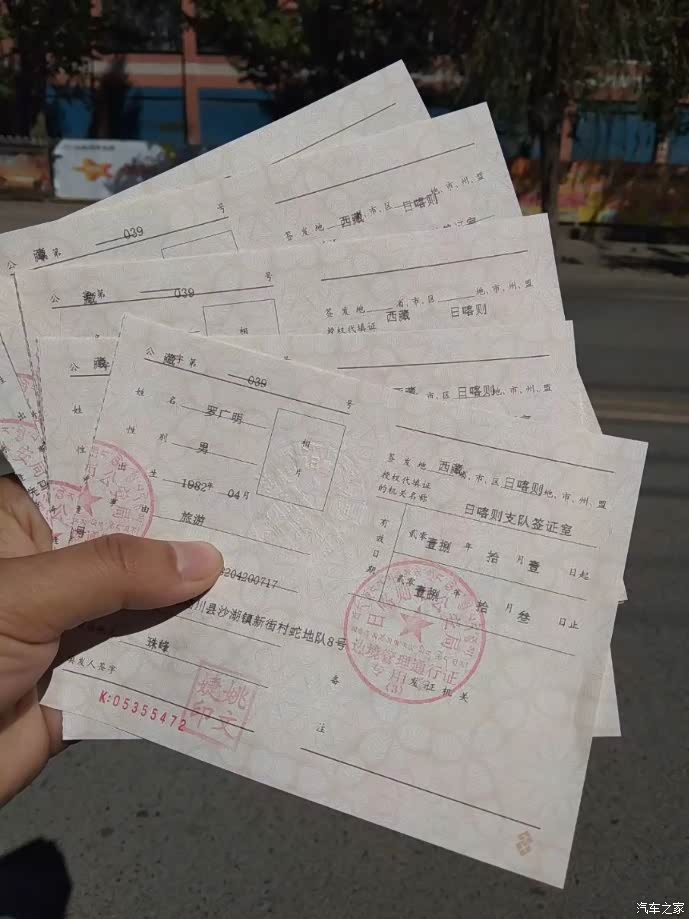 公 藏 第 039 号
签发地 西藏 、市、区 日喀则 、市、州、盟
公 藏 第 039 号
签发地 西藏 省、市、区 日喀则 地、市、州、盟
授权代填证
相
公 藏
西藏 、市、区 日喀则 地、市、州、盟
姓
性
公 藏 字 第 039 号
姓 名 罗广明
性 别 男
出生 1982年 04月
事由 旅游
相片
204200717
川县沙湖镇新街村蛇地队8号
珠峰
签发人签字
K:05355472
姚文婕印
签发地 西藏 、市、区 日喀则 地、市、州、盟
授权代填证
的机关名称 日喀则支队签证室
有效日期
贰零壹捌 年 拾 月 壹 日起
贰零壹捌 年 拾 月 叁 日止
边境管理通行证
专用章
(3)
发证机关
备注
汽车之家